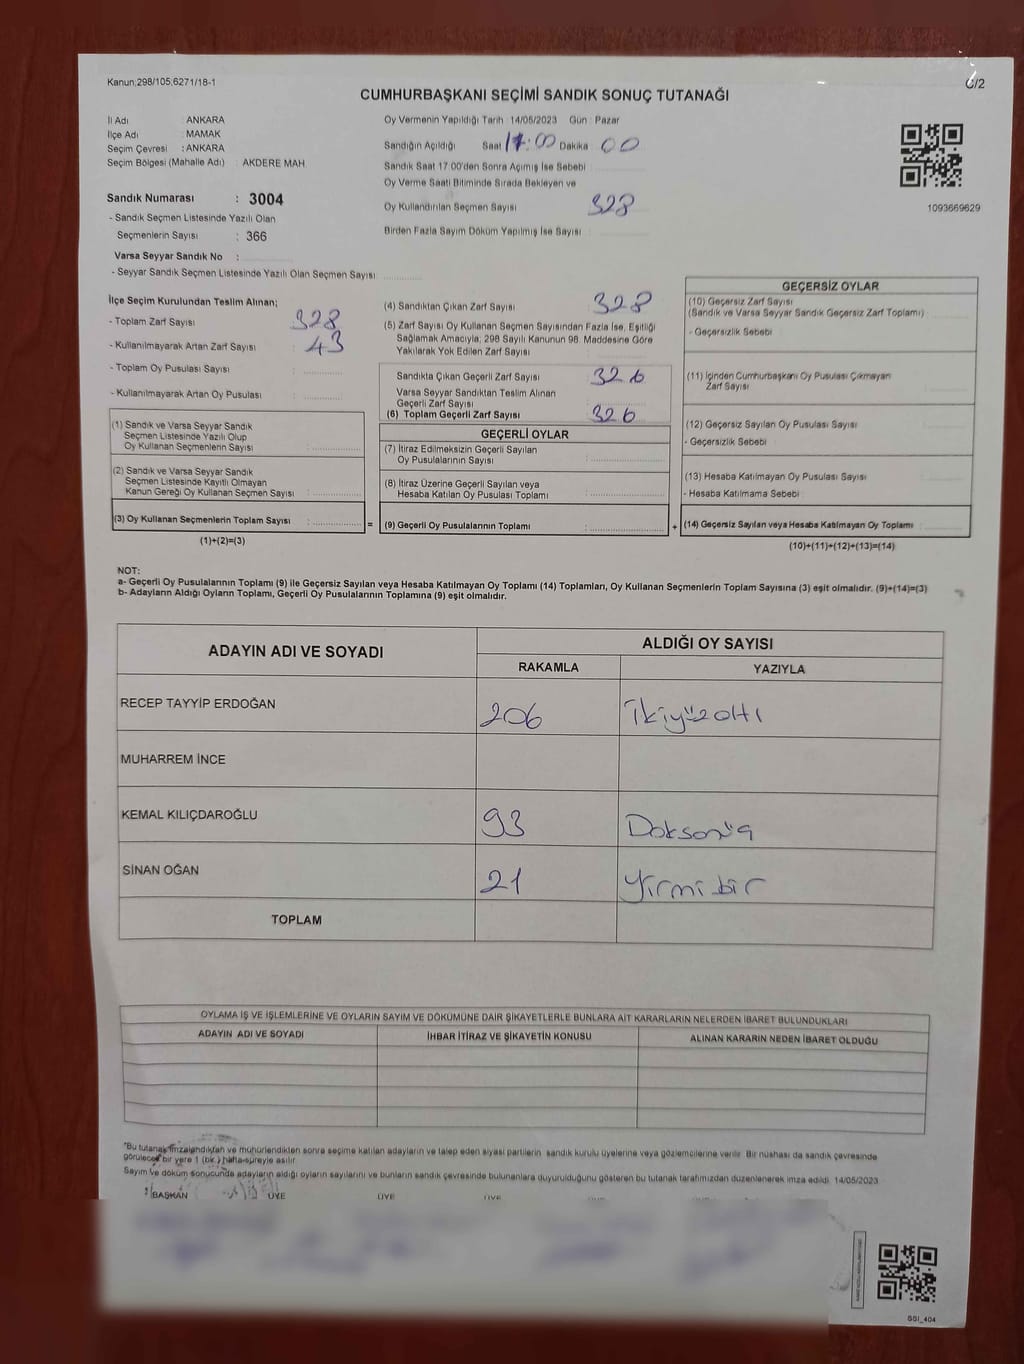 Kanun:298/105;6271/18-1
C/2
CUMHURBAŞKANI SEÇİMİ SANDIK SONUÇ TUTANAĞI
İl Adı : ANKARA
İlçe Adı : MAMAK
Seçim Çevresi : ANKARA
Seçim Bölgesi (Mahalle Adı) : AKDERE MAH
Sandık Numarası : 3004
- Sandık Seçmen Listesinde Yazılı Olan
Seçmenlerin Sayısı : 366
Varsa Seyyar Sandık No :
- Seyyar Sandık Seçmen Listesinde Yazılı Olan Seçmen Sayısı
Oy Vermenin Yapıldığı Tarih : 14/05/2023 Gün : Pazar
Sandığın Açıldığı Saat 17:00 Dakika 00
Sandık Saat 17.00'den Sonra Açılmış İse Sebebi
Oy Verme Saati Bitiminde Sırada Bekleyen ve
Oy Kullandırılan Seçmen Sayısı 328
Birden Fazla Sayım Döküm Yapılmış İse Sayısı
1093669629
İlçe Seçim Kurulundan Teslim Alınan;
- Toplam Zarf Sayısı : 328
- Kullanılmayarak Artan Zarf Sayısı : 43
- Toplam Oy Pusulası Sayısı :
- Kullanılmayarak Artan Oy Pusulası :
(1) Sandık ve Varsa Seyyar Sandık
Seçmen Listesinde Yazılı Olup
Oy Kullanan Seçmenlerin Sayısı :
(2) Sandık ve Varsa Seyyar Sandık
Seçmen Listesinde Kayıtlı Olmayan
Kanun Gereği Oy Kullanan Seçmen Sayısı :
(3) Oy Kullanan Seçmenlerin Toplam Sayısı :
(1)+(2)=(3)
=
(4) Sandıktan Çıkan Zarf Sayısı : 328
(5) Zarf Sayısı Oy Kullanan Seçmen Sayısından Fazla İse, Eşitliği
Sağlamak Amacıyla; 298 Sayılı Kanunun 98. Maddesine Göre
Yakılarak Yok Edilen Zarf Sayısı :
Sandıkta Çıkan Geçerli Zarf Sayısı : 326
Varsa Seyyar Sandıktan Teslim Alınan
Geçerli Zarf Sayısı
(6) Toplam Geçerli Zarf Sayısı : 326
GEÇERLİ OYLAR
(7) İtiraz Edilmeksizin Geçerli Sayılan
Oy Pusulalarının Sayısı :
(8) İtiraz Üzerine Geçerli Sayılan veya
Hesaba Katılan Oy Pusulası Toplamı :
(9) Geçerli Oy Pusulalarının Toplamı :
+
GEÇERSİZ OYLAR
(10) Geçersiz Zarf Sayısı
(Sandık ve Varsa Seyyar Sandık Geçersiz Zarf Toplamı) :
- Geçersizlik Sebebi :
(11) İçinden Cumhurbaşkanı Oy Pusulası Çıkmayan
Zarf Sayısı
(12) Geçersiz Sayılan Oy Pusulası Sayısı :
- Geçersizlik Sebebi :
(13) Hesaba Katılmayan Oy Pusulası Sayısı :
- Hesaba Katılmama Sebebi :
(14) Geçersiz Sayılan veya Hesaba Katılmayan Oy Toplamı :
(10)+(11)+(12)+(13)=(14)
NOT:
a- Geçerli Oy Pusulalarının Toplamı (9) ile Geçersiz Sayılan veya Hesaba Katılmayan Oy Toplamı (14) Toplamları, Oy Kullanan Seçmenlerin Toplam Sayısına (3) eşit olmalıdır. (9)+(14)=(3)
b- Adayların Aldığı Oyların Toplamı, Geçerli Oy Pusulalarının Toplamına (9) eşit olmalıdır.
ADAYIN ADI VE SOYADI
ALDIĞI OY SAYISI
RAKAMLA YAZIYLA
RECEP TAYYİP ERDOĞAN 206 ikiyüzaltı
MUHARREM İNCE
KEMAL KILIÇDAROĞLU 93 Doksanüç
SİNAN OĞAN 21 Yirmibir
TOPLAM
OYLAMA İŞ VE İŞLEMLERİNE VE OYLARIN SAYIM VE DÖKÜMÜNE DAİR ŞİKAYETLERLE BUNLARA AİT KARARLARIN NELERDEN İBARET BULUNDUKLARI
ADAYIN ADI VE SOYADI İHBAR İTİRAZ VE ŞİKAYETİN KONUSU ALINAN KARARIN NEDEN İBARET OLDUĞU
*Bu tutanak imzalandıktan ve mühürlendikten sonra seçime katılan adayların ve talep eden siyasi partilerin sandık kurulu üyelerine veya gözlemcilerine verilir. Bir nüshası da sandık çevresinde
görülecek bir yere 1 (bir ) hafta süreyle asılır.
Sayım ve döküm sonucunda adayların aldığı oyların sayılarını ve bunların sandık çevresinde bulunanlara duyurulduğunu gösteren bu tutanak tarafımızdan düzenlenerek imza edildi. 14/05/2023
BAŞKAN ÜYE ÜYE ÜYE
SSI_404